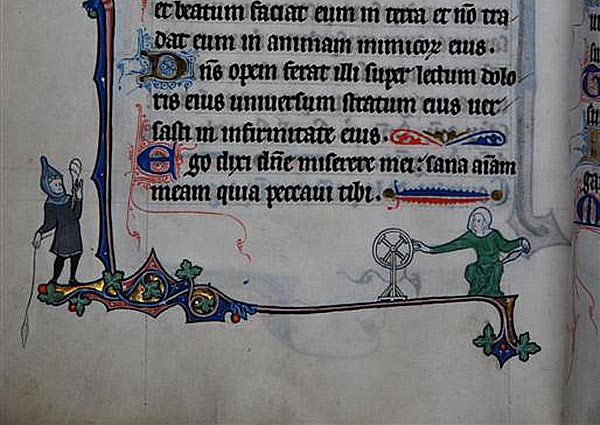 et beatum faciat eum in terra et nõ tra
dat eum in animam inimicoꝝ eius.
Dñs opem ferat illi super lectum dolo
ris eius universum stratum eius ver
sasti in infirmitate eius.
Ego dixi dñe miserere mei: sana aĩam
meam quia peccavi tibi.